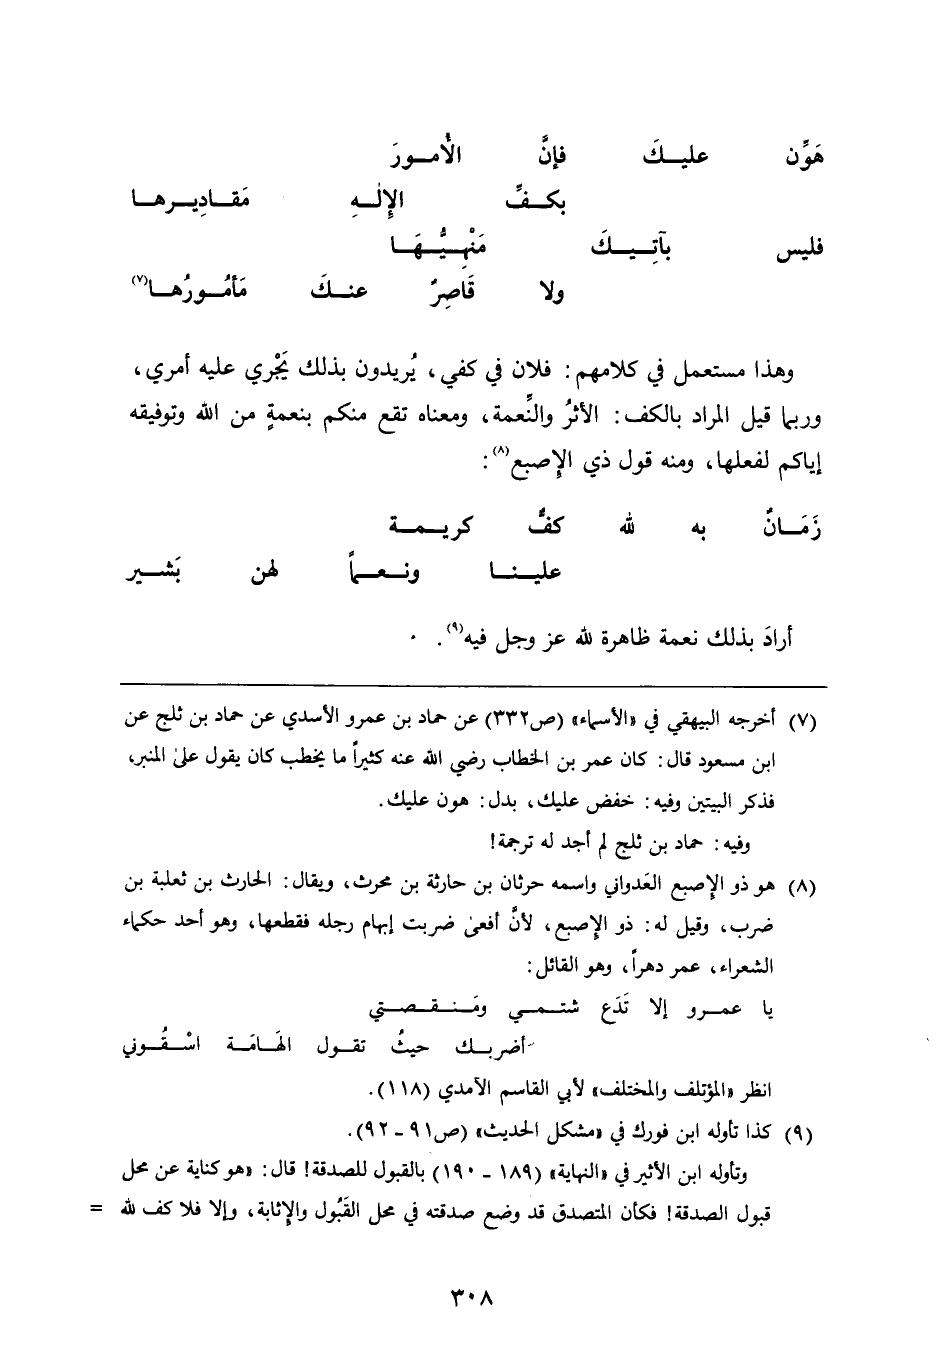 هَوِّن عليـكَ فإنَّ الأمـورَ
بكـفِّ الإلٰـهِ مَقـاديـرهـا
فليس بآتِيـكَ مَنْهِيُّـهَـا
ولا قَاصِرٌ عنـكَ مَأمُـورُهـا(٧)
وهذا مستعمل في كلامهم: فلان في كفي، يُريدون بذلك يَجْري عليه أمري،
وربما قيل المراد بالكف: الأثرُ والنِّعمة، ومعناه تقع منكم بنعمةٍ من الله وتوفيقه
إياكم لفعلها، ومنه قول ذي الإصبع(٨):
زَمَـانٌ به لله كفٌّ كريـمـة
عليـنـا ونـعـماً لهن بَشـير
أرادَ بذلك نعمة ظاهرة لله عز وجل فيه(٩).
(٧) أخرجه البيهقي في «الأسماء» (ص٣٣٢) عن حماد بن عمرو الأسدي عن حماد بن ثلج عن
ابن مسعود قال: كان عمر بن الخطاب رضي الله عنه كثيراً ما يخطب كان يقول على المنبر،
فذكر البيتين وفيه: خفض عليك، بدل: هون عليك.
وفيه: حماد بن ثلج لم أجد له ترجمة!
(٨) هو ذو الإصبع العَدواني واسمه حرثان بن حارثة بن محرث، ويقال: الحارث بن ثعلبة بن
ضرب، وقيل له: ذو الإصبع، لأنَّ أفعىٰ ضربت إبهام رجله فقطعها، وهو أحد حكماء
الشعراء، عمر دهراً، وهو القائل:
يا عمـرو إلا تَدَع شتمـي ومَـنـقـصـتي
أضربـك حيثُ تقـول الهَـامَـة اسْـقُـوني
انظر «المؤتلف والمختلف» لأبي القاسم الآمدي (١١٨).
(٩) كذا تأوله ابن فورك في «مشكل الحديث» (ص٩١ - ٩٢).
وتأوله ابن الأثير في «النهاية» (١٨٩ - ١٩٠) بالقبول للصدقة! قال: «هو كناية عن محل
قبول الصدقة! فكأن المتصدق قد وضع صدقته في محل القَبُول والإثابة، وإلا فلا كف لله =
٣٠٨